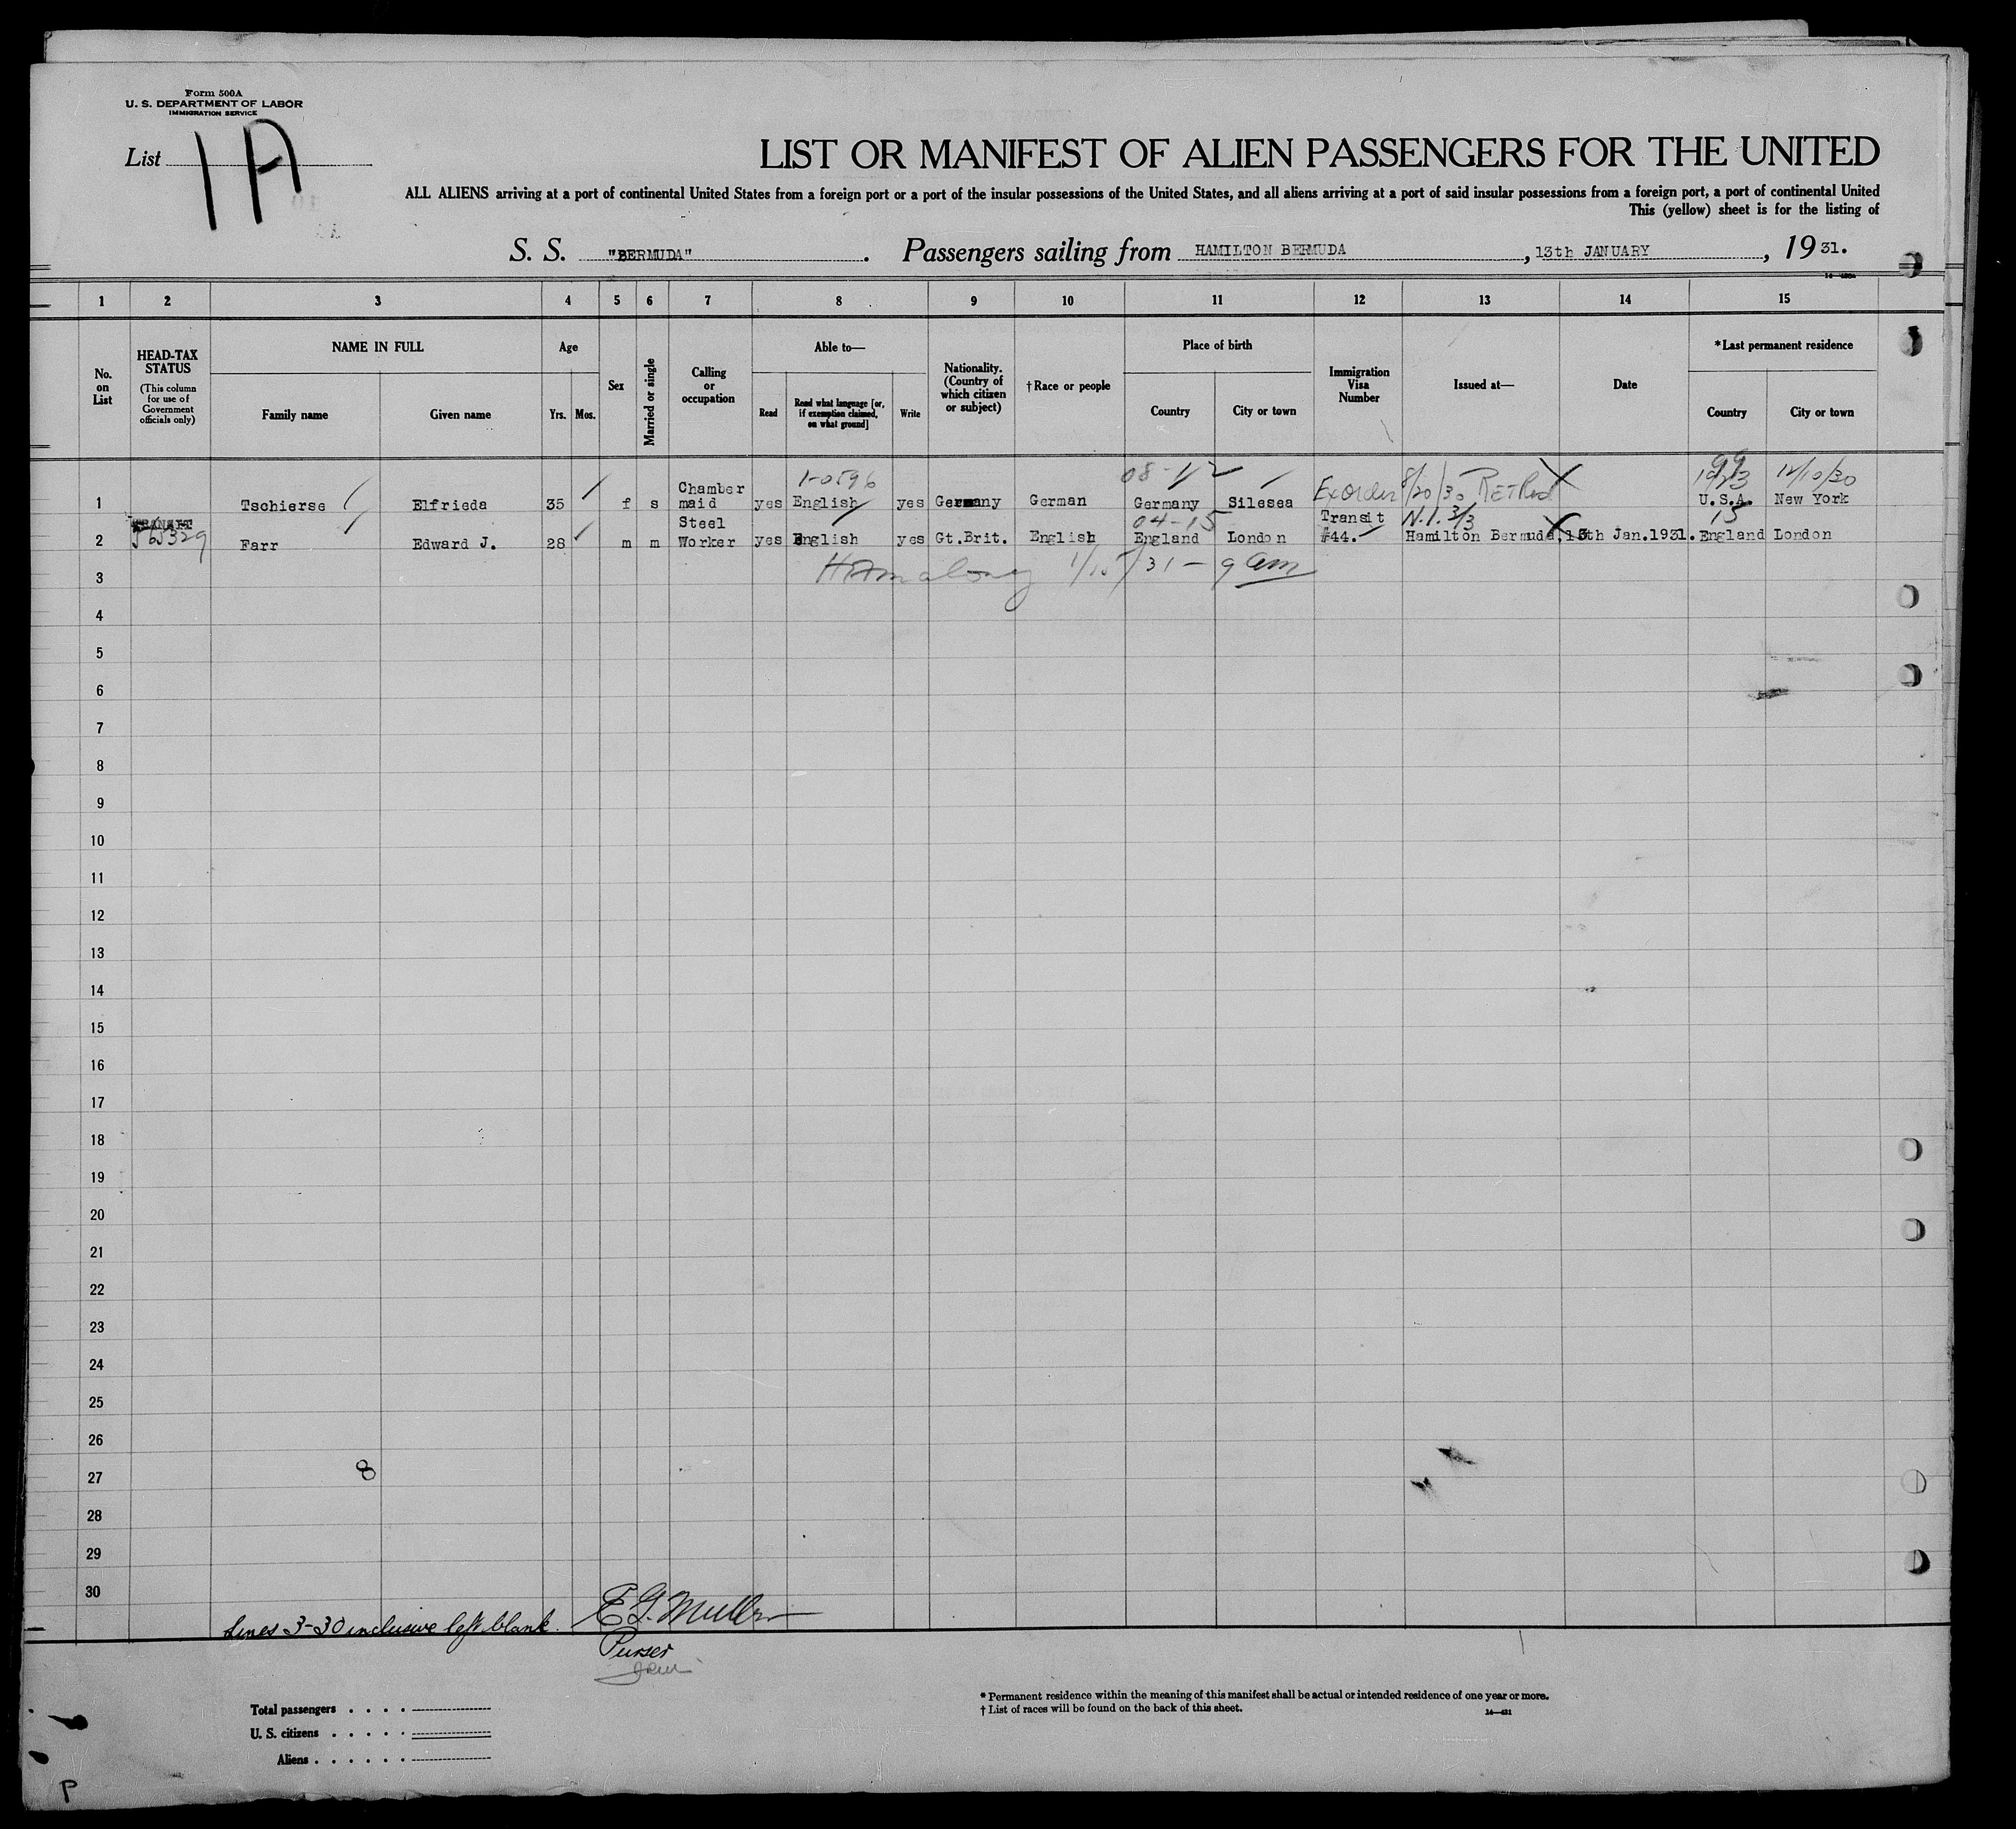 Form 500A
U. S. DEPARTMENT OF LABOR
IMMIGRATION SERVICE
List 1A
LIST OR MANIFEST OF ALIEN PASSENGERS FOR THE UNITED
ALL ALIENS arriving at a port of continental United States from a foreign port or a port of the insular possessions of the United States, and all aliens arriving at a port of said insular possessions from a foreign port, a port of continental United
This (yellow) sheet is for the listing of
S. S. "BERMUDA". Passengers sailing from HAMILTON BERMUDA, 13th JANUARY, 1931.
1 2 3 4 5 6 7 8 9 10 11 12 13 14 15
No. on List
HEAD-TAX STATUS
(This column for use of Government officials only)
NAME IN FULL
Family name
Given name
Age
Yrs. Mos.
Sex
Married or single
Calling or occupation
Able to—
Read
Read what language [or, if exemption claimed, on what ground]
Write
Nationality. (Country of which citizen or subject)
†Race or people
Place of birth
Country
City or town
Immigration Visa Number
Issued at—
Date
*Last permanent residence
Country
City or town
1-0596 08-1/2 99 12/10/30
1 Tschierse Elfrieda 35 f s Chamber maid yes English yes Germany German Germany Silesea Ex Order 8/20/30 U.S.A. New York
TRANSIT
04-15 N.I. 3/3 15
2 Farr Edward J. 28 m m Steel Worker yes English yes Gt.Brit. English England London Transit #44. Hamilton Bermuda, 13th Jan.1931. England London
3 1/15/31 - 9 am
4
5
6
7
8
9
10
11
12
13
14
15
16
17
18
19
20
21
22
23
24
25
26
27 8
28
29
30
Lines 3-30 inclusive left blank. E G. Muller
Purser
Total passengers
U. S. citizens
Aliens
* Permanent residence within the meaning of this manifest shall be actual or intended residence of one year or more.
† List of races will be found on the back of this sheet.
14—431
P